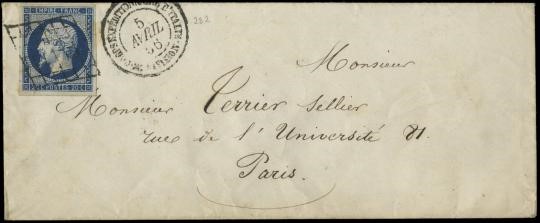 EMPIRE FRANC
POSTES 20 C
5
AVRIL
56
282
Monsieur
Monsieur Terrier Sellier
rue de l'Université 81.
Paris.